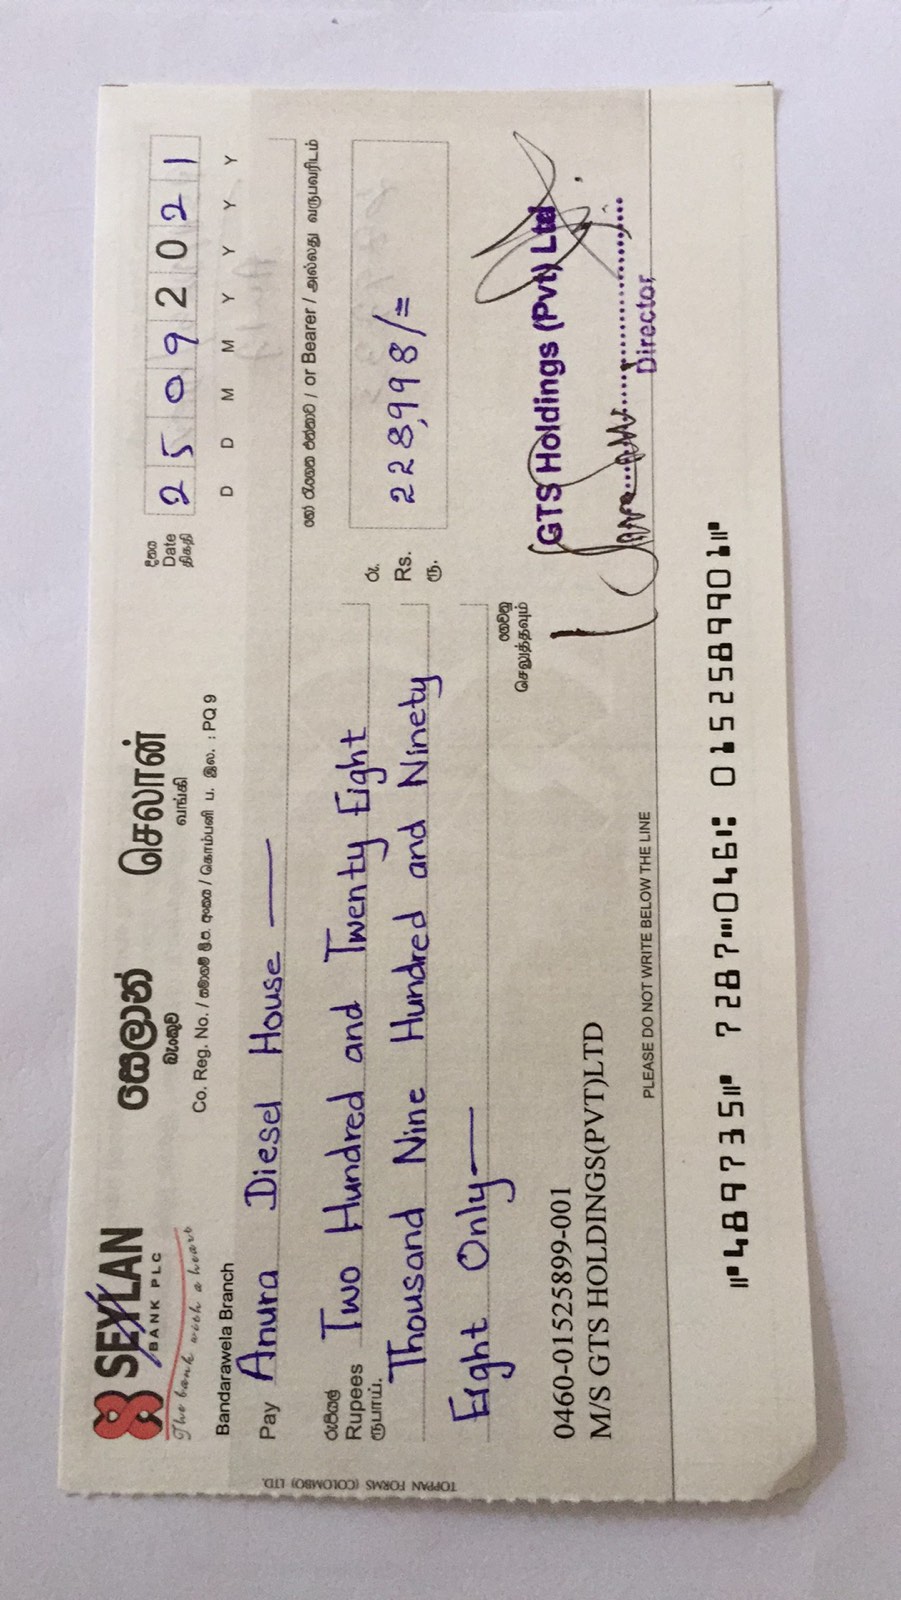 SEYLAN
BANK PLC
The bank with a heart
සෙලාන්
බැංකුව
செலான்
வங்கி
Co. Reg. No. / සමාගම් ලි.ප. අංකය / கொம்பனி ப. இல. : PQ 9
Bandarawela Branch
දිනය
Date
திகதி
2 5 0 9 2 0 2 1
D D M M Y Y Y Y
Pay Anura Diesel House
හෝ රැගෙන එන්නාට / or Bearer / அல்லது வருபவரிடம்
රුපියල්
Rupees
ரூபாய்.
Two Hundred and Twenty Eight
Thousand Nine Hundred and Ninety
Eight Only
රු.
Rs.
ரூ.
228,998/=
ගෙවනු
செலுத்தவும்
GTS Holdings (Pvt) Ltd
Director
0460-01525899-001
M/S GTS HOLDINGS(PVT)LTD
PLEASE DO NOT WRITE BELOW THE LINE
⑈489735⑈ 7287⑉046⑆ 015258990 1⑈
TOPPAN FORMS (COLOMBO) LTD.